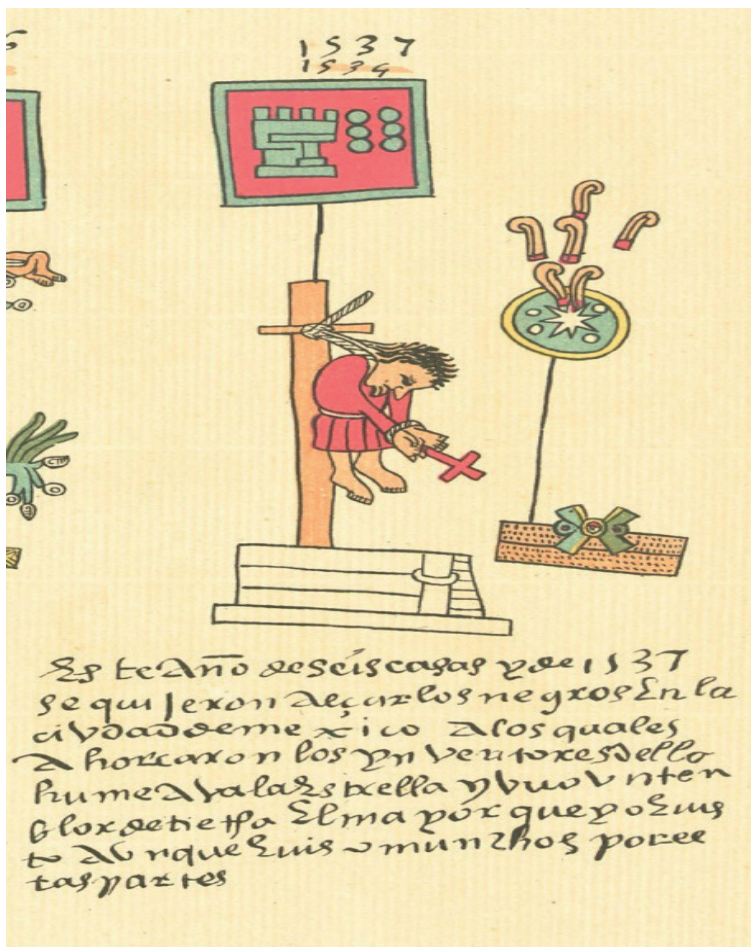 6
1537
1534
Este Año de seis casas y de 1537
se quisieron alçar los negros En la
ciudad de mexico A los quales
Ahorcaron los ynventores dello
humeava la Estrella y vuo vn ten
blor de tierra El mayor que yo E uis
to Avnque E uisto munchos por es
tas partes